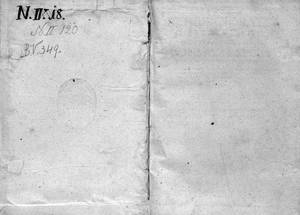 N. IV. 18.
N II 120
BV. 349.